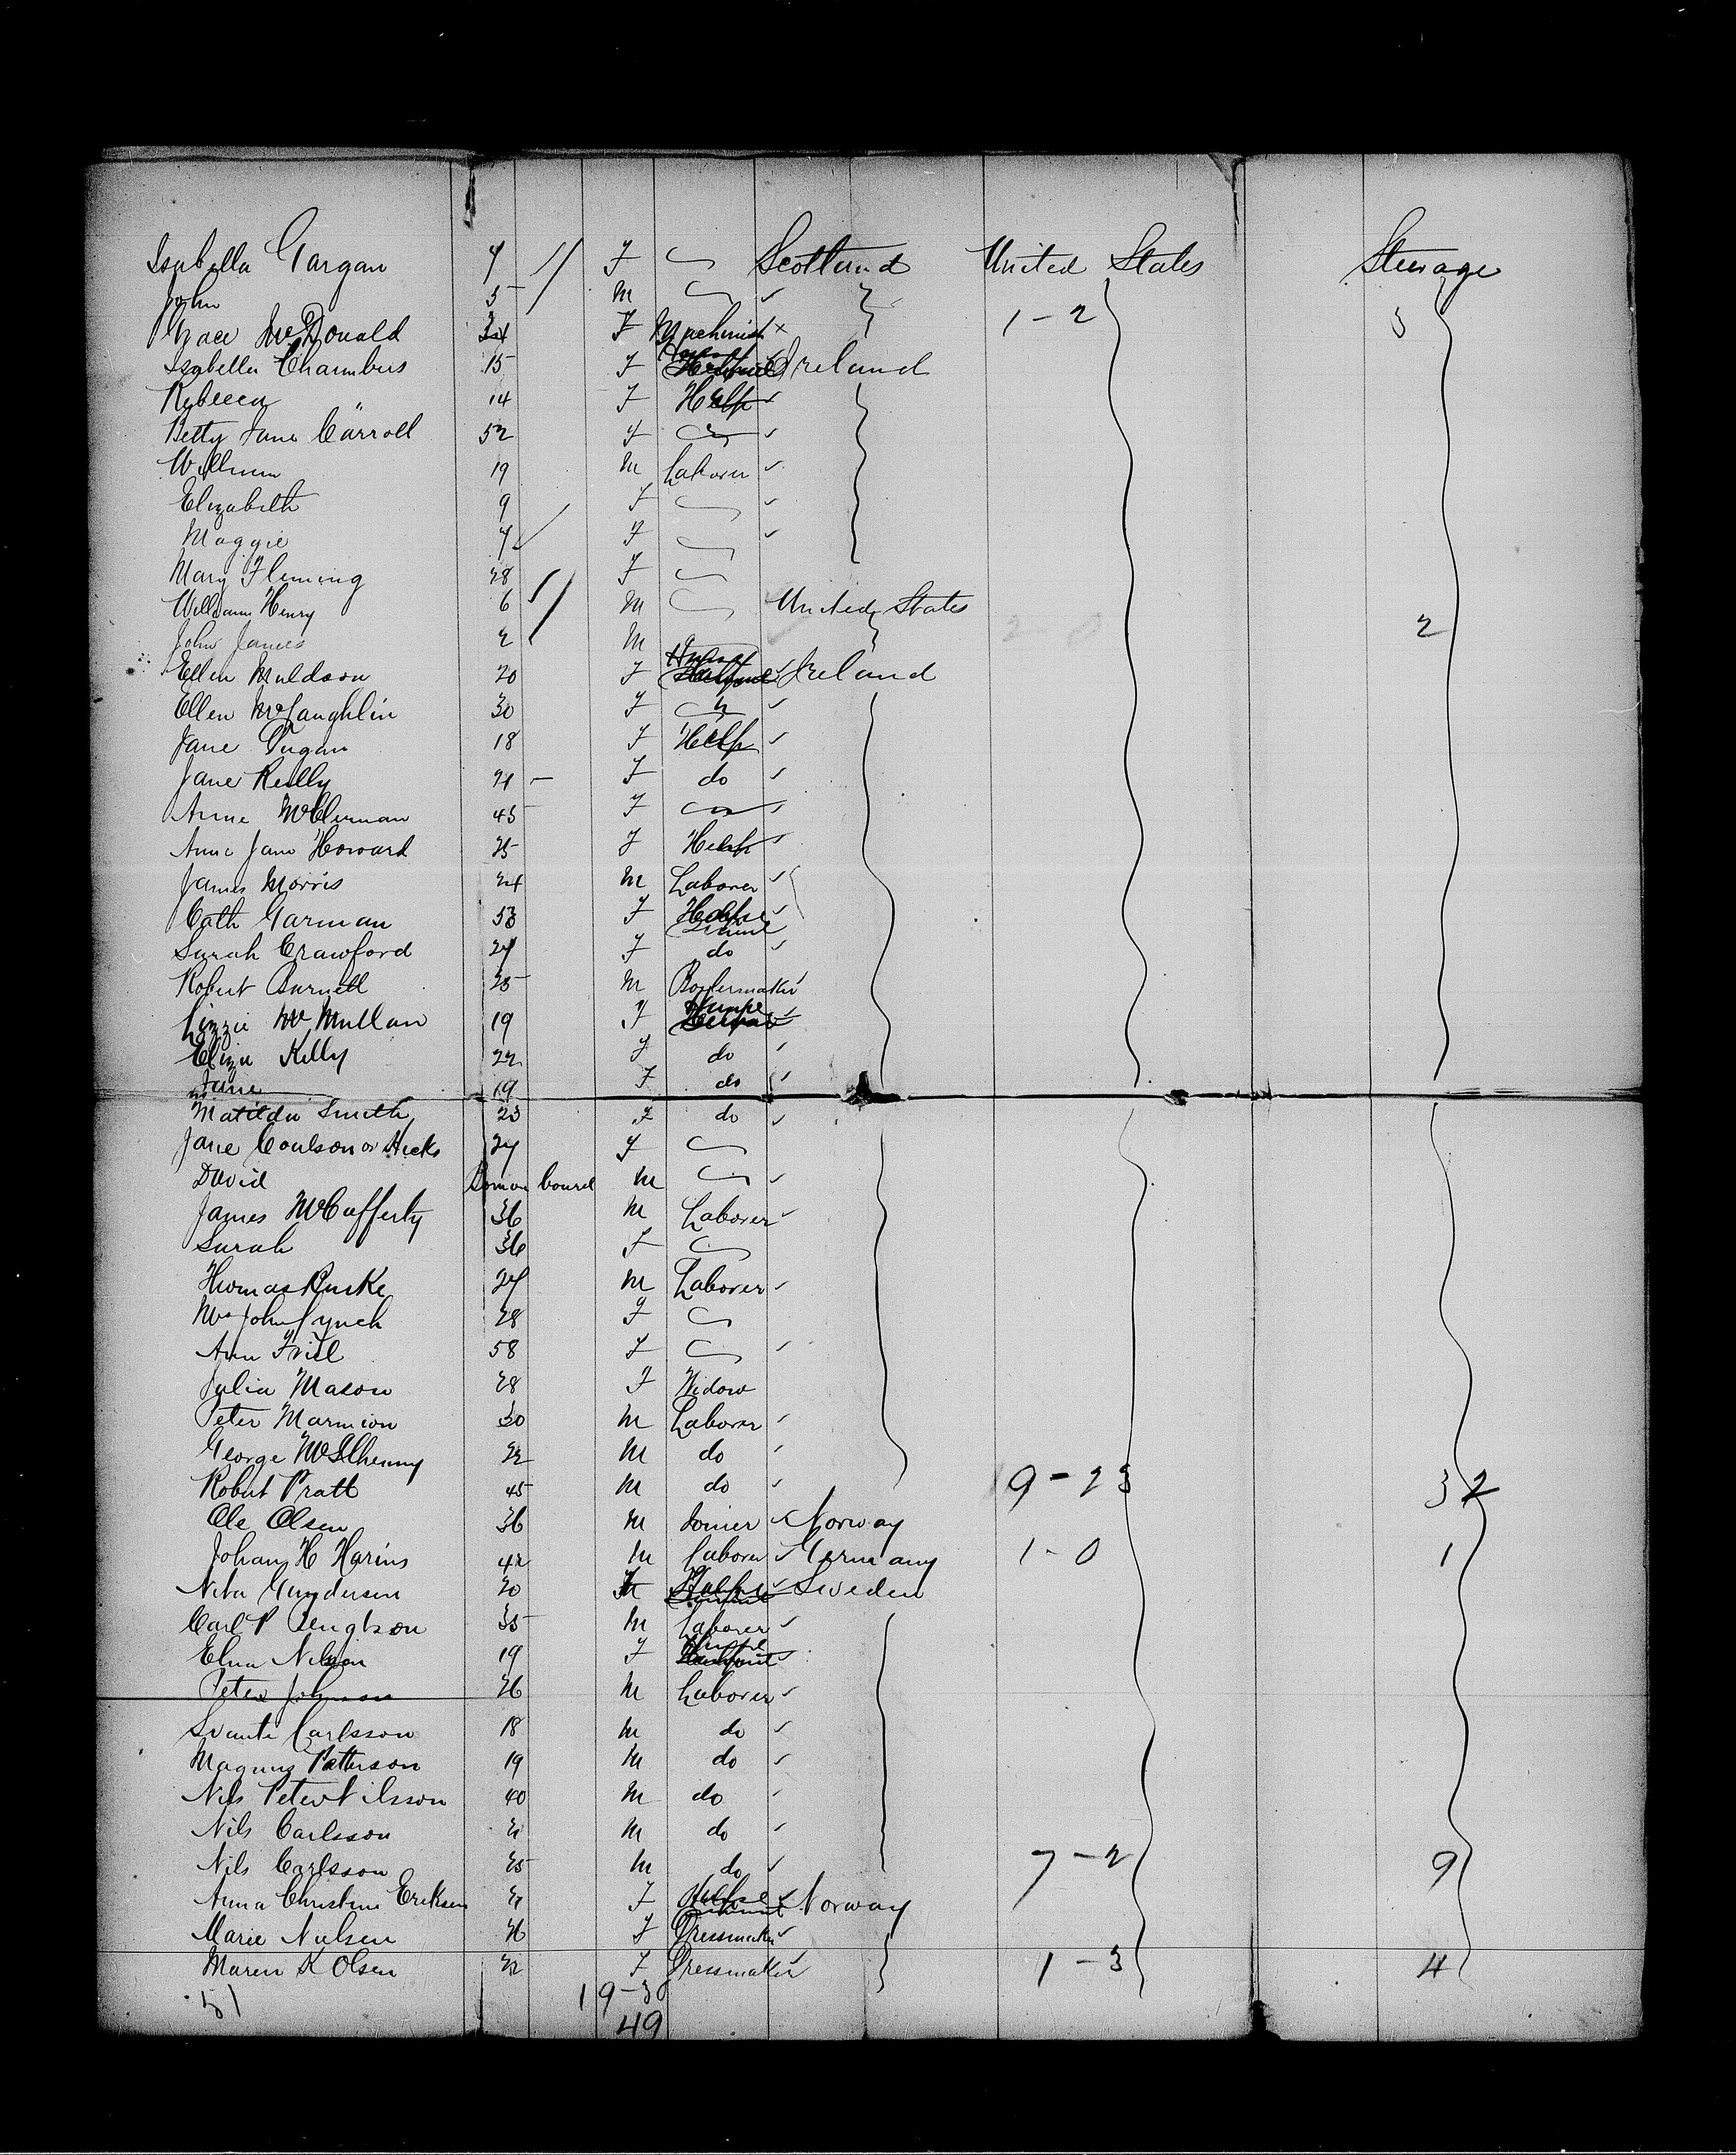 Isabella Gargan 7 F Scotland United States Steerage
John 5 M
Grace McDonald 34 F Machinist × 1-2 3
Isabella Chambers 15 F Ireland
Rebecca 14 F Help
Betty Jane Carroll 52 F
William 19 M Laborer
Elizabeth 9 F
Maggie 7 F
Mary Fleming 28 F
William Henry 6 M United States
John James 2 M 2-0 2
Ellen Muldoon 20 F Ireland
Ellen McLaughlin 30 F
Jane Dugan 18 F Help
Jane Reilly 21 F do
Anne McClernan 45 F
Anne Jane Howard 25 F Help
James Morris 24 M Laborer
Cath Garman 53 F
Sarah Crawford 27 F do
Robert Burnett 25 M Boilermaker
Lizzie McMullan 19 F
Eliza Kelly 22 F do
Jane 19 F do
Matilda Smith 23 F do
Jane Coulson or Hicks 27 F
David Born on board M
James McCafferty 36 M Laborer
Sarah 36 F
Thomas Burke 27 M Laborer
Mrs John Lynch 28 F
Ann Friel 58 F
Julia Mason 28 F Widow
Peter Marmion 30 M Laborer
George McIlhenny 22 M do
Robert Pratt 45 M do 9-23 32
Ole Olsen 36 M Joiner Norway
Johan H Harins 42 M Laborer Germany 1-0 1
Gunderson 20 F Sweden
Carl P Bengtson 35 M Laborer
Elna Nilson 19 F
Peter Johnson 26 M Laborer
Svante Carlsson 18 M do
Magnus Patterson 19 M do
Nils Peter Nilsson 40 M do
Nils Carlsson 21 M do
Nils Carlsson 25 M do 7-2 9
Anna Christine Eriksen 21 F Norway
Marie Nielsen 26 F Dressmaker
Maren K Olsen 22 F Dressmaker 1-3 4
51 19-30
49